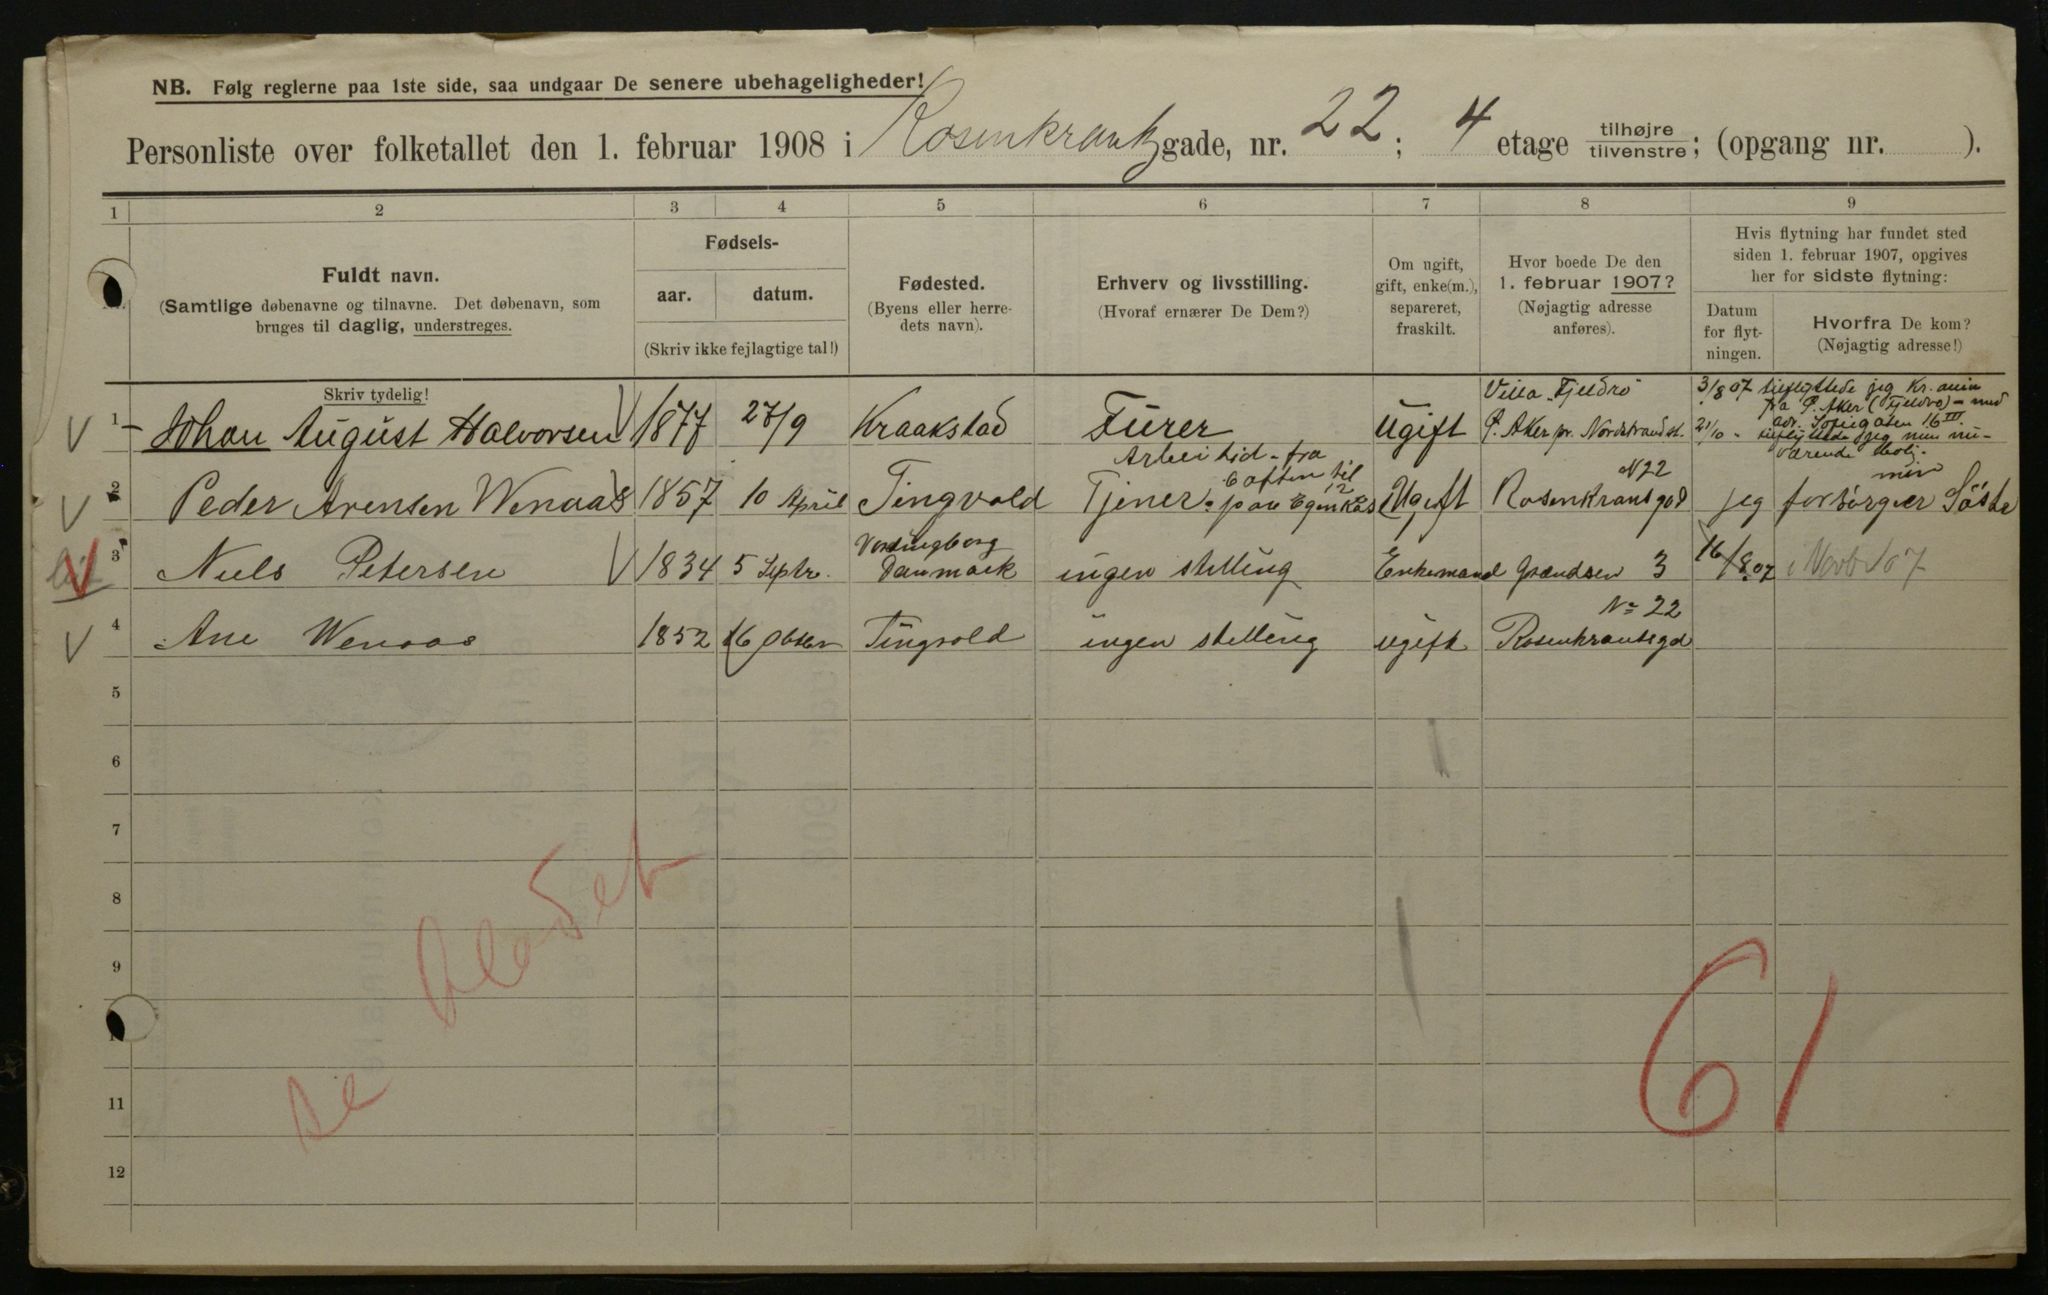 NB. Følg reglerne paa 1ste side, saa undgaar De senere ubehageligheder!
Personliste over folketallet den 1. februar 1908 i Rosenkrantzgade, nr. 22; 4 etage tilhøjre tilvenstre; (opgang nr. ).
1 2 3 4 5 6 7 8 9
Fuldt navn.
(Samtlige døbenavne og tilnavne. Det døbenavn, som
bruges til daglig, understreges.
Skriv tydelig!
Fødsels-
aar. datum.
(Skriv ikke fejlagtige tal!)
Fødested.
(Byens eller herre-
dets navn).
Erhverv og livsstilling.
(Hvoraf ernærer De Dem?)
Om ugift,
gift, enke(m.),
separeret,
fraskilt.
Hvor boede De den
1. februar 1907?
(Nøjagtig adresse
anføres).
Hvis flytning har fundet sted
siden 1. februar 1907, opgives
her for sidste flytning:
Datum
for flyt-
ningen.
Hvorfra De kom?
(Nøjagtig adresse!)
1 Johan August Halvorsen 1877 27/9 Kraakstad Furer Ugift Villa "Fjeldro"
Ø. Aker pr. Nordstrand st.
3/8 07 tilflyttede jeg Kr.ania
fra Ø. Aker (Fjeldro) - med
adr. Sofiegaten 16 III
21/10 - tilflyttede jeg min nu-
værende bolig.
2 Peder Arensen Wenaas 1857 10 April Tingvold Tjener paa Ugift N 22
Rosenkransgd jeg forsörger min Söster
Arbeitstid - fra
6 aften til
12
3 Niels Petersen 1834 5 Septr. Vordingborg
Danmark ingen stelling Enkemand Grændsen 3 16/8 07 i Novb 107
4 Ane Wenaas 1852 16 Obtbr Tingvold ingen stelling ugift No 22
Rosenkrantsgd
5
6
7
8
9
11
12
61